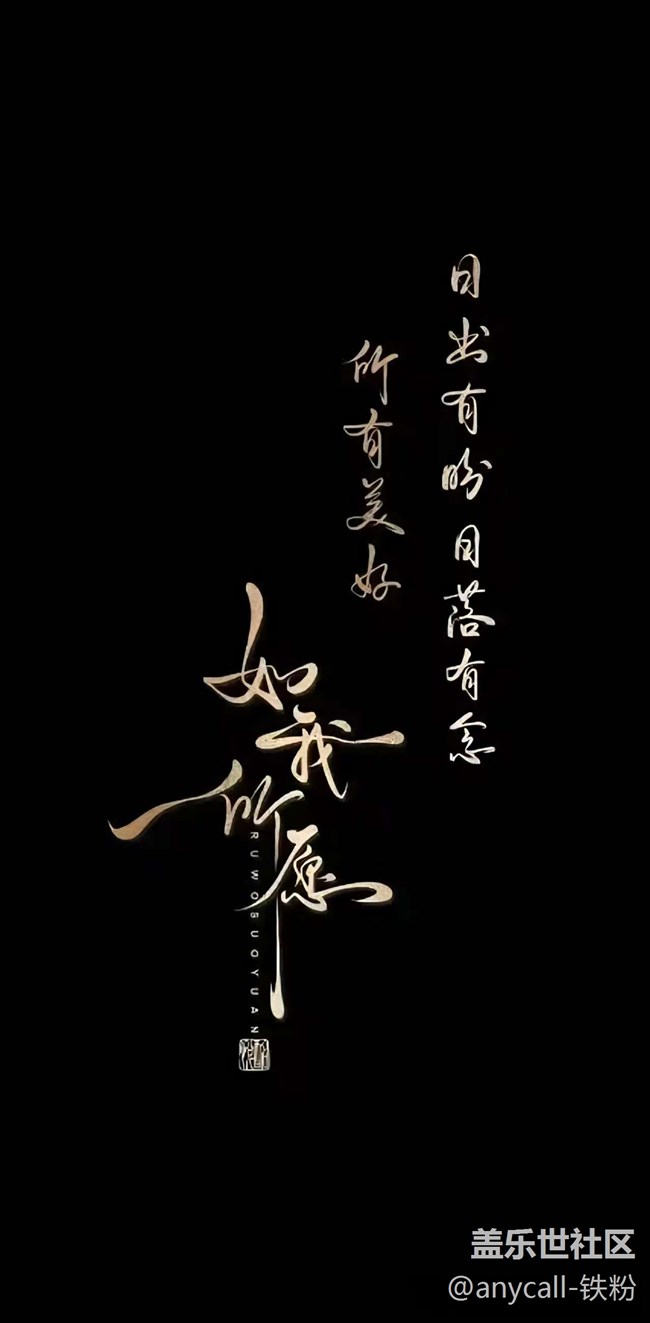 日出有盼日落有念
所有美好
如我所愿
RUWOSUOYUAN
盖乐世社区
@anycall-铁粉